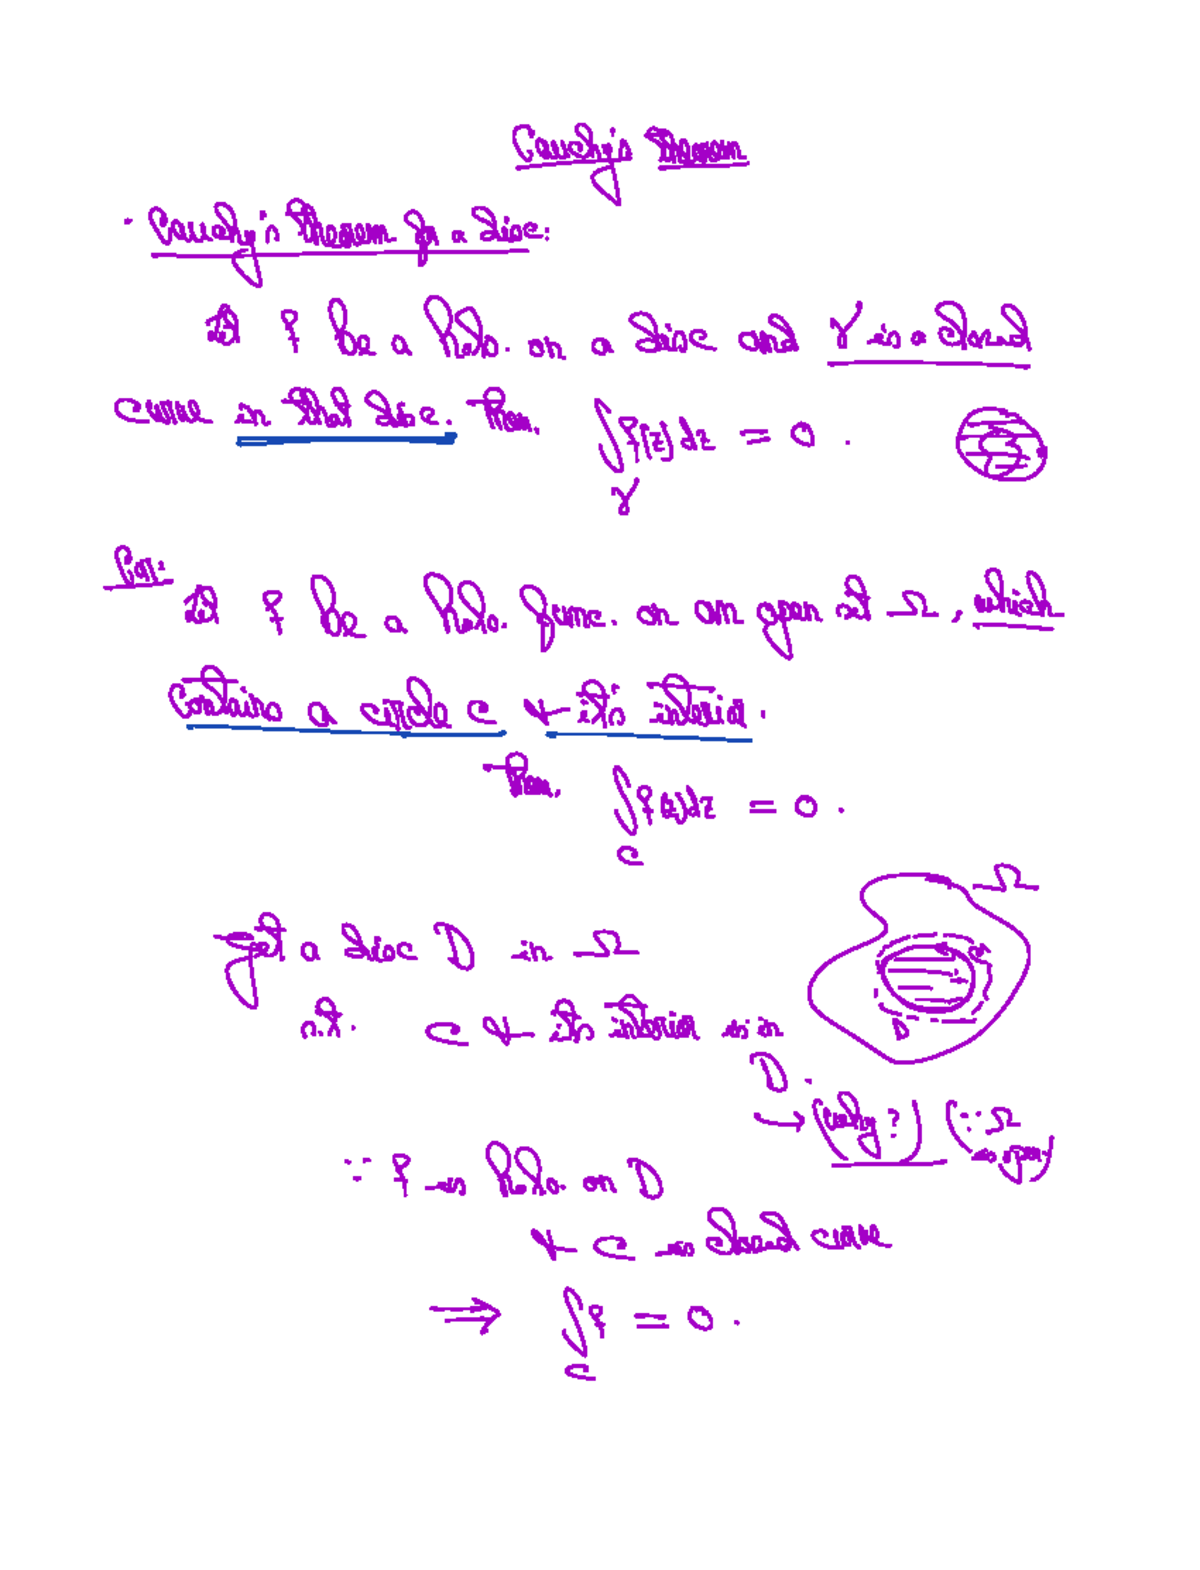 Cauchy's theorem
· Cauchy's theorem for a disc:
Let f be a holo. on a disc and γ is a closed
curve in that disc. Then, ∫_γ f(z) dz = 0 .
Cor:
Let f be a holo. func. on an open set Ω, which
contains a circle C & it's interior.
Then, ∫_C f(z)dz = 0 .
Ω
get a disc D in Ω
C
s.t. C & its interior is in
D
D .
→ (why?) (∵ Ω
is open)
∵ f is holo. on D
& C is closed curve
⇒ ∫_C f = 0 .